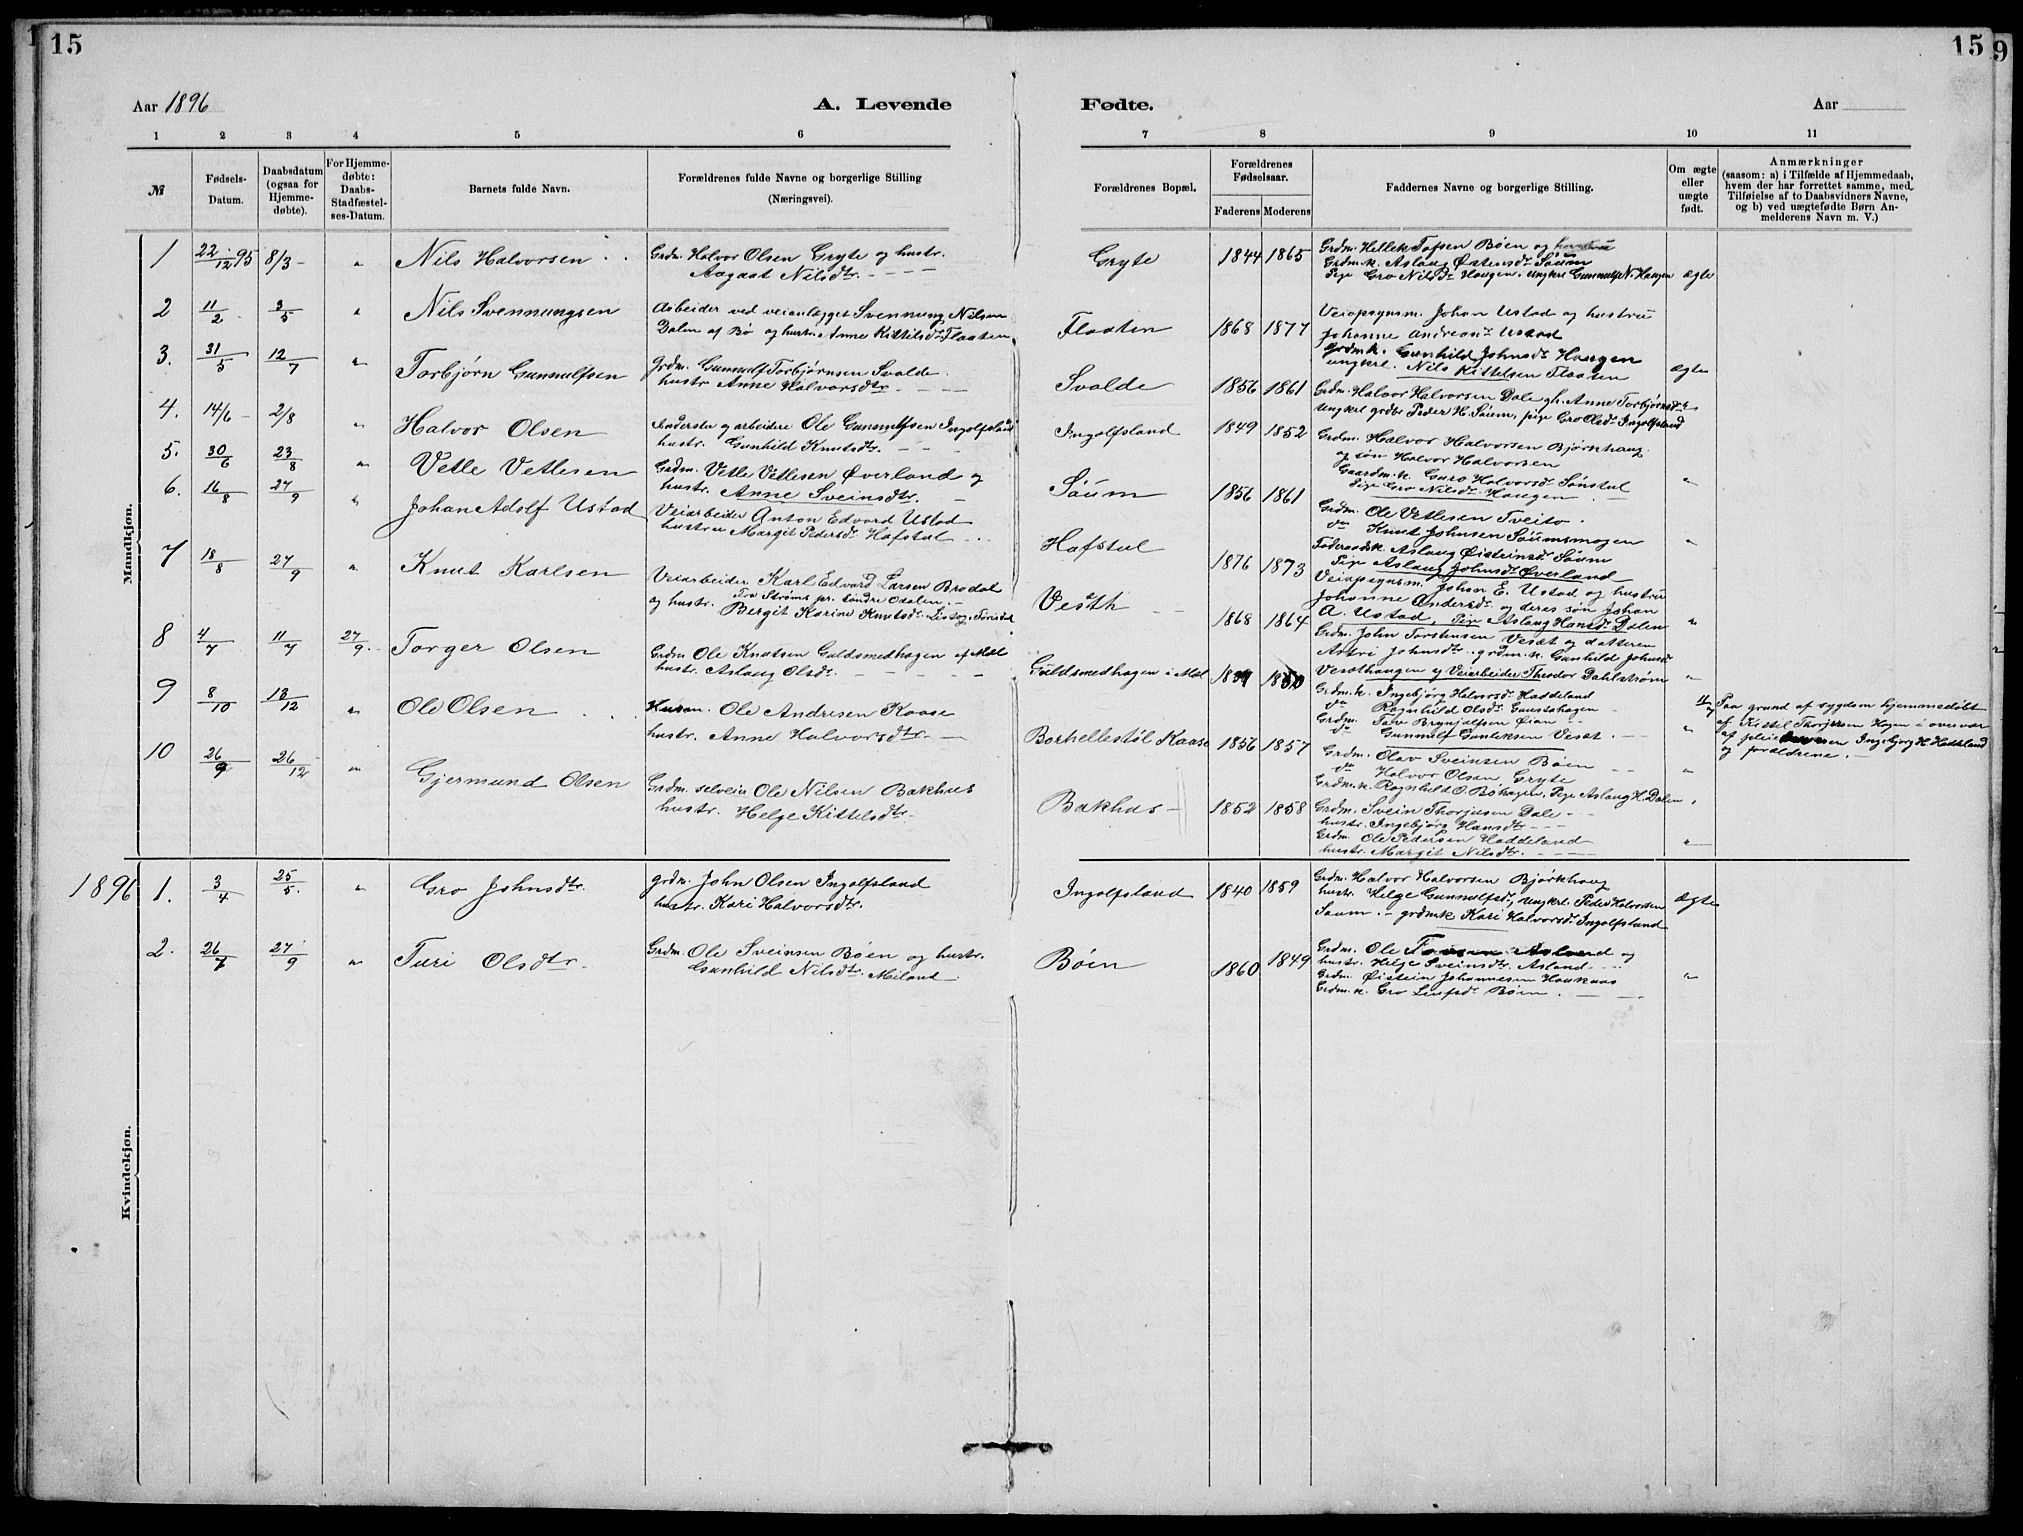 15
15
9
Aar 1896
A. Levende
Fødte.
Aar
1 2 3 4 5 6 7 8 9 10 11
№
Fødsels-
Datum.
Daabsdatum
(ogsaa for
Hjemme-
døbte).
For Hjemme-
døbte:
Daabs-
Stadfæstel-
ses-Datum.
Barnets fulde Navn.
Forældrenes fulde Navne og borgerlige Stilling
(Næringsvei).
Forældrenes Bopæl.
Forældrenes
Fødselsaar.
Faderens Moderens
Faddernes Navne og borgerlige Stilling.
Om ægte
eller
uægte
født.
Anmærkninger
(saasom: a) i Tilfælde af Hjemmedaab,
hvem der har forrettet samme, med
Tilføielse af to Daabsvidners Navne,
og b) ved uægtefødte Børn An-
melderens Navn m. V.)
Mandkjøn.
1 22/12 95 8/3 " Nils Halvorsen
Grdm. Halvor Olsen Gryte og hustr.
Aagaat Nilsdtr.
Gryte 1844 1865
Grdm. Hellek Tofsen Bøen og hustru
Grdm.k. Aslaug Østensdr Sáum
Pige Gro Nilsdr Haugen. ungkr. Gunnulf N. Haugen ægte
2 11/2 3/5 " Nils Svennungsen
Arbeider ved veianlægget Svennung Nilsen
Dalen af Bø og hustr. Anne Kittilsdr Flaaten
Flaaten 1868 1877
Veiopsynsm. Johan Ustad og hustru
Johanne Andreasdr Ustad
grdm.k. Gunhild Johnsdr Haugen
ungkrl. Nils Kittelsen Flaaten ægte
3. 31/5 12/7 " Torbjørn Gunnulfsen
Grdm. Gunnulf Torbjørnsen Svalde
hustr Anne Halvorsdtr
Svalde 1856 1861
Grdm. Halvor Halvorsen Dale gh. Anne Torbjørnsdr
Ungkrl grdbr Peder H. Sáum, pige Gro Olsdr Ingolfsland "
4. 14/6 2/8 " Halvor Olsen
arbeider Ole Gunnulfsen Ingolfsland
hustr. Gunhild Knutsdtr.
Ingolfsland 1849 1852
Grdm. Halvor Halvorsen Bjørkhaug
og søn Halvor Halvorsen
Gaardm.k. Guro Halvorsdr Sønstul
Pige Gro Nilsdr Haugen "
5. 30/6 23/8 " Vetle Vetlesen
Grdm. Vetle Vetlesen Øverland og
hustr. Anne Sveinsdtr.
Sáum 1856 1861
Grdm. Ole Vetlesen Tveito
do Knut Johnsen Sáumsmogen
Føderaadsk. Aslaug Øisteinsdr Sáum
Pige Aslaug Johnsdr Øverland "
6. 16/8 27/9 " Johan Adolf Ustad
Veiarbeider Anton Edvard Ustad
hustru Margit Pedersdr Hafstul
Hafstul 1876 1873
Veiopsynsm. Johan E. Ustad og hustru
Johanne Andersdr og deres søn Johan
A. Ustad, Pige Aslaug Hansdr Dalen "
7 18/8 27/9 " Knut Karlsen
Veiarbeider Karl Edvard Larsen Brodal
fra Strøms pr. Søndre Odalen
og hustr. Bergit Karine Knutsdr
Vesth 1868 1864
Grdm. John Torstensen Vesæt og datteren
Astri Johnsdr. grdm.k. Gunhild Johnsdr
Vesæthaugen og Veiarbeider Theodor Dahlstrøm "
8 4/7 11/7 27/9 Torger Olsen
Grdm Ole Knutsen Guldsmedhagen af Mæl
hustr. Aslaug Olsdr.
Guldsmedhagen i Mæl
Grdm.k. Ingebjørg Halvorsdr Haddeland
do Ragnhild Olsdr Gunstahagen
Grdm. Tov Brynjulfsen Øian
do Gunnulf Gunleksen Vesæt "
11/7 Paa grund af sygdom hjemmedøbt
af Kittel Thorjussen Hagen i overvær
af Ingebjørg H. Haddeland
og forældrene.
9 8/10 13/12 " Ole Olsen
Husm. Ole Andresen Kaase
hustr. Anne Halvorsdtr.
Borhellestøl Kaase 1856 1857
Grdm. Olav Sveinsen Bøen
do Halvor Olsen Gryte
Grdm.k. Ragnhild O. Bøhagen, Pige Aslaug H. Dalen "
10 26/9 26/12 " Gjermund Olsen
Grdm. selveier Ole Nilsen Bakhus
hustr. Helge Kittelsdtr.
Bakhus 1852 1858
Grdm. Svein Thorjusen Dale
hustr. Ingebjørg Hansdtr
Grdm. Ole Pedersen Haddeland
hustr. Margit Nilsdtr. "
Kvindekjøn.
1896 1. 3/4 25/5. " Gro Johnsdtr.
grdm. John Olsen Ingolfsland
hustr. Kari Halvorsdtr.
Ingolfsland 1840 1859
Grdm. Halvor Halvorsen Bjørkhaug
hustr. Helge Gunnulfsdr, ungkrl. Peder Halvorsen
Saum. grdm.k Kari Halvorsdr Ingolfsland ægte
2. 26/7 27/9 " Turi Olsdtr.
Grdm. Ole Sveinsen Bøen og hustr.
Gunhild Nilsdtr. Miland
Bøen 1860 1849
Grdm. Ole Asland og
hustr. Helge Sveinsdtr. Asland
Grdm. Øistein Johannesen Haukaas
Grdm.k. Gro Leifsdr Bøen "